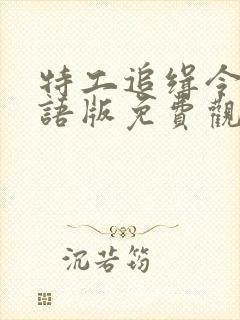 特工追缉令
語版免費觀
沉若筠